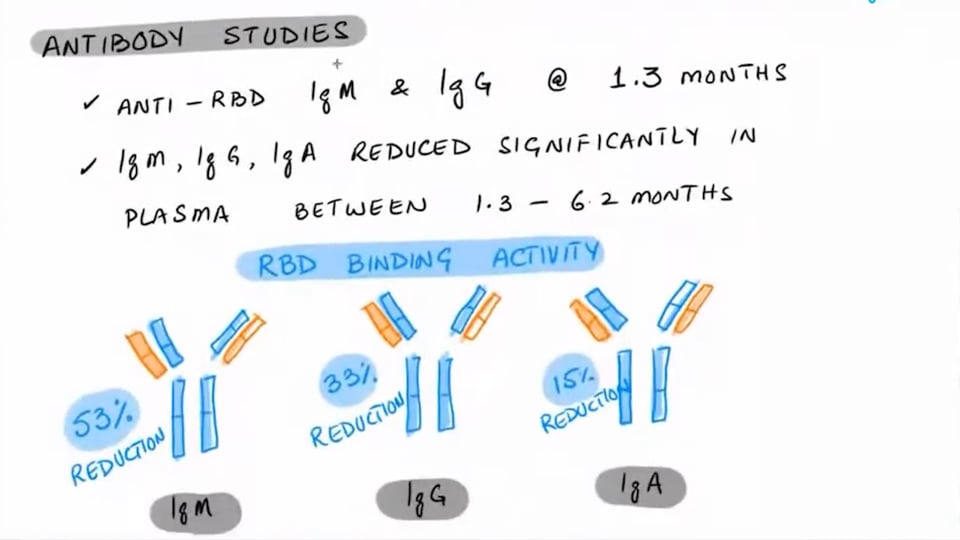 ANTIBODY STUDIES
✓ ANTI-RBD IgM & IgG @ 1.3 MONTHS
✓ IgM, IgG, IgA REDUCED SIGNIFICANTLY IN
PLASMA BETWEEN 1.3 - 6.2 MONTHS
RBD BINDING ACTIVITY
53% REDUCTION
33% REDUCTION
15% REDUCTION
IgM
IgG
IgA